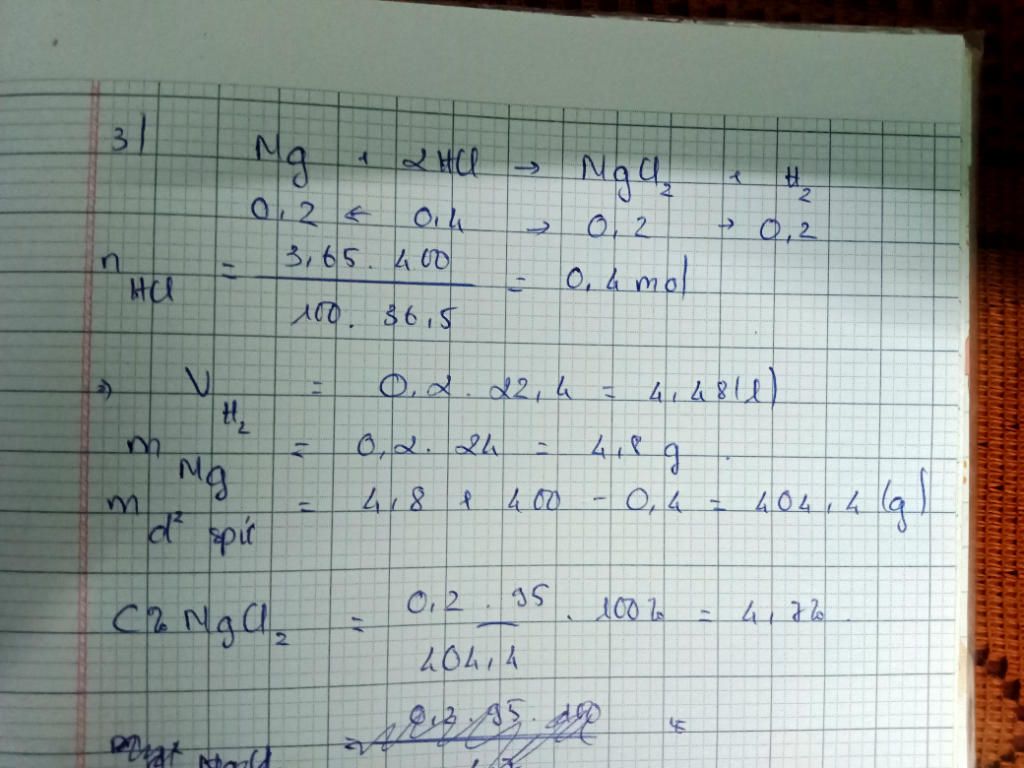 3/
Mg + 2HCl → MgCl₂ + H₂
0,2 ← 0,4 → 0,2 → 0,2
n HCl = 3,65 . 400 / 100 . 36,5 = 0,4 mol
⇒ V H₂ = 0,2 . 22,4 = 4,48 (l)
m Mg = 0,2 . 24 = 4,8 g .
m d² spư = 4,8 + 400 - 0,4 = 404,4 (g)
C% MgCl₂ = 0,2 . 95 / 404,4 . 100% = 4,7% .